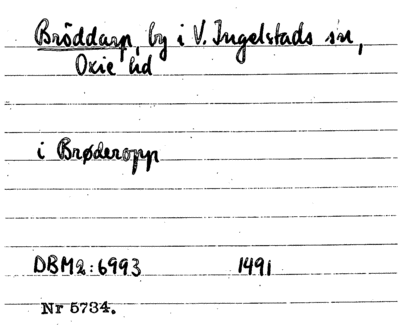 Bröddarp, by i V. Ingelstads sn,
Oxie hd
i Brøderopp
DBM2:6993 1491
Nr 5734.